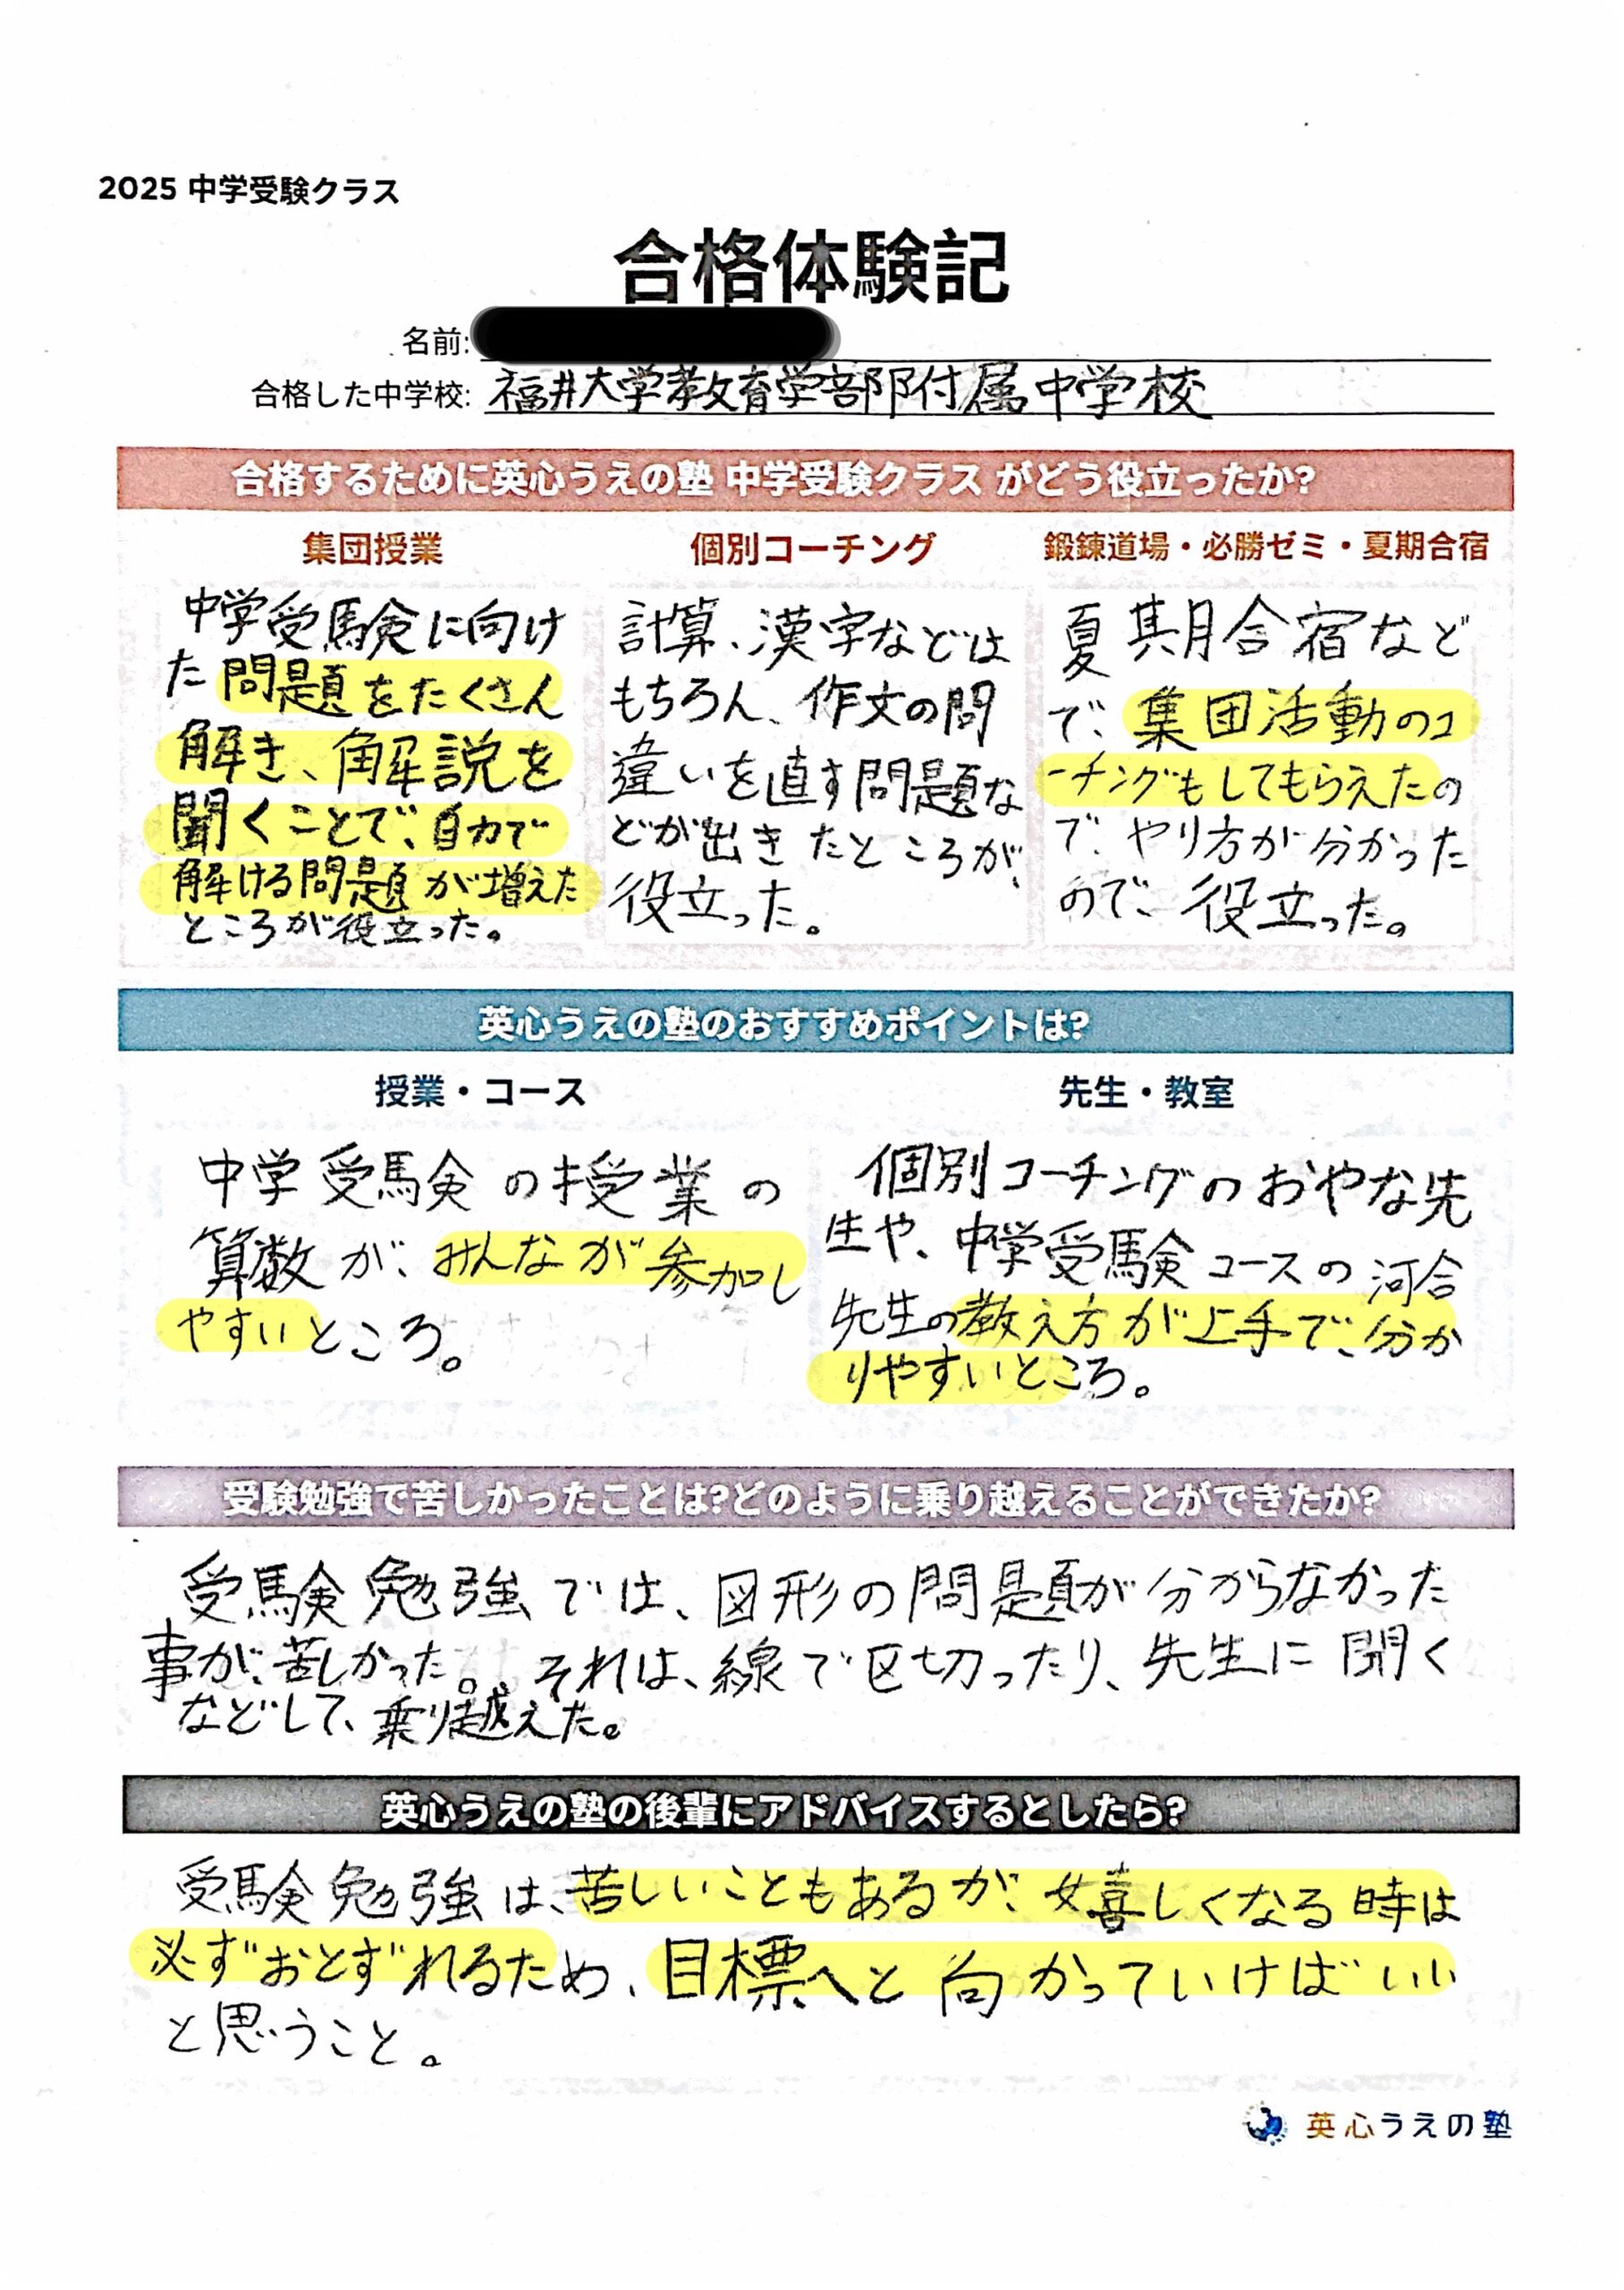 2025 中学受験クラス
合格体験記
名前:
合格した中学校: 福井大学教育学部附属中学校
合格するために英心うえの塾 中学受験クラス がどう役立ったか?
集団授業
中学受験に向け
た問題をたくさん
解き、解説を
聞くことで、自力で
解ける問題が増えた
ところが役立った。
個別コーチング
計算、漢字などは
もちろん、作文の間
違いを直す問題な
どが出きたところが、
役立った。
鍛錬道場・必勝ゼミ・夏期合宿
夏期合宿など
で、集団活動のコ
ーチングもしてもらえたの
で、やり方が分かった
ので、役立った。
英心うえの塾のおすすめポイントは?
授業・コース
中学受験の授業の
算数が、みんなが参加し
やすいところ。
先生・教室
個別コーチングのおやな先
生や、中学受験コースの河合
先生の教え方が上手で、分か
りやすいところ。
受験勉強で苦しかったことは?どのように乗り越えることができたか?
受験勉強では、図形の問題が分からなかった
事が、苦しかった。それは、線で区切ったり、先生に聞く
などして、乗り越えた。
英心うえの塾の後輩にアドバイスするとしたら?
受験勉強は、苦しいこともあるが、嬉しくなる時は
必ずおとずれるため、目標へと向かっていけばいい
と思うこと。
英心うえの塾